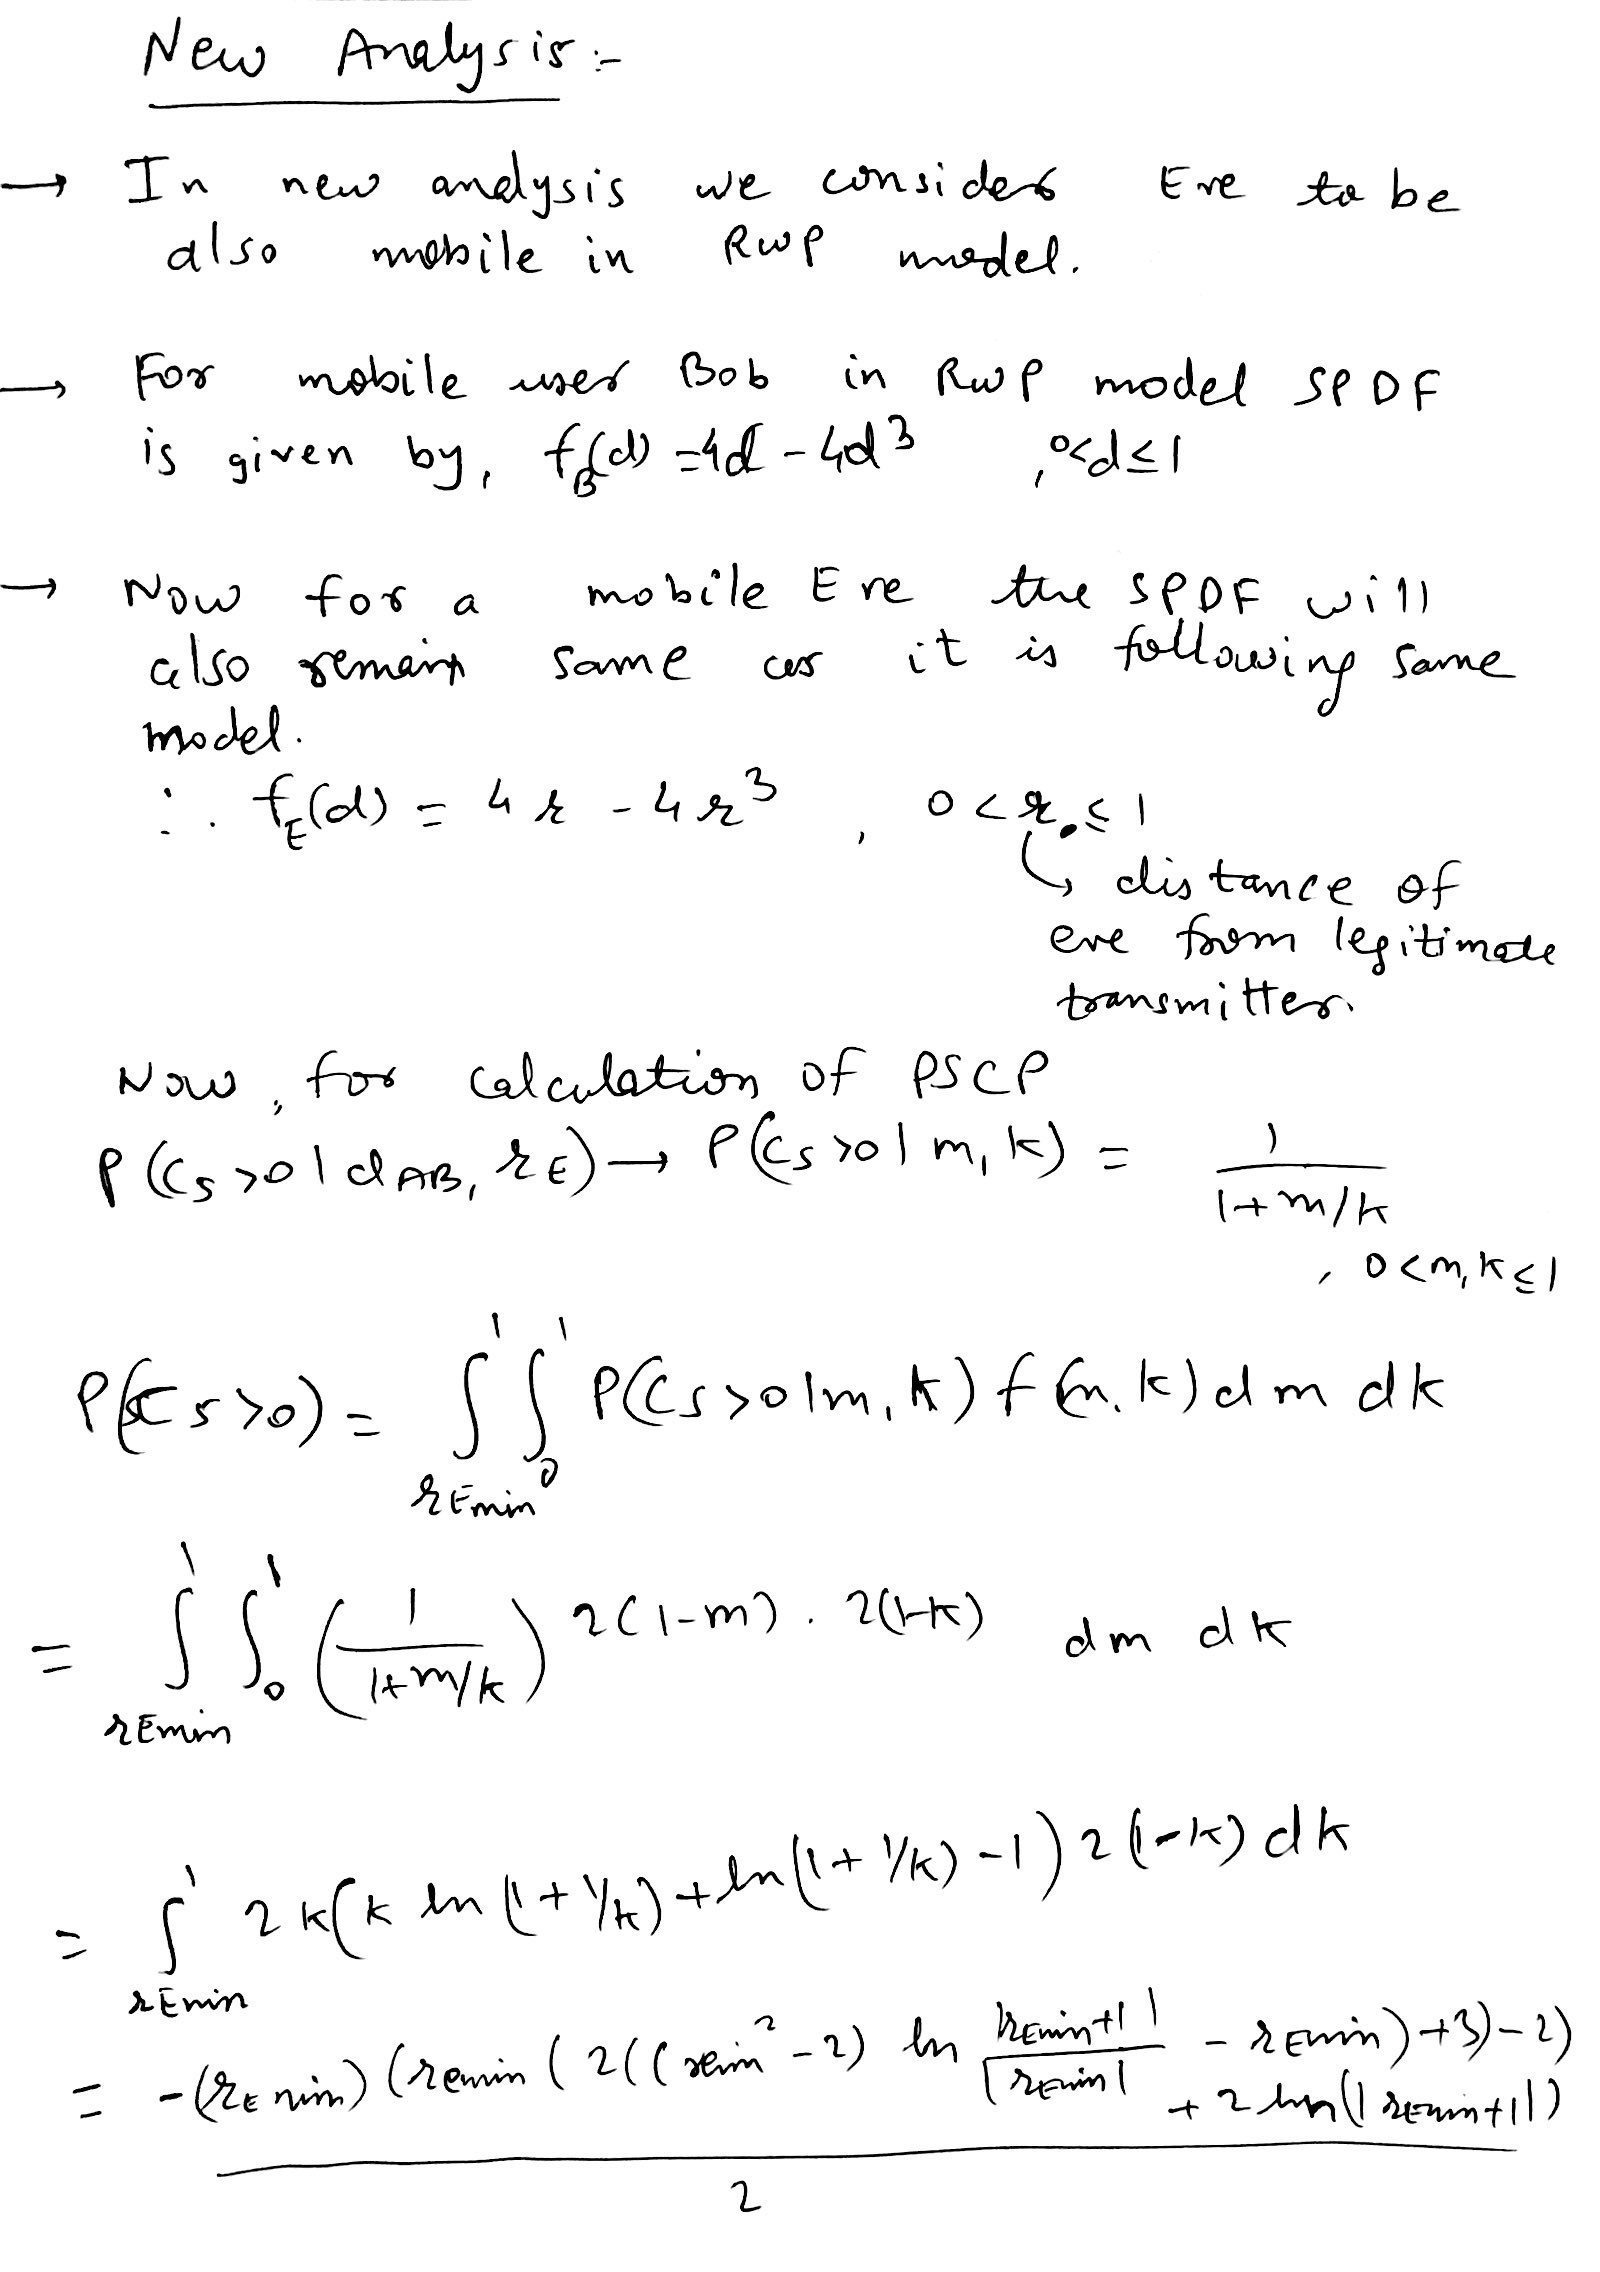 New Analysis :-
→ In new analysis we consider Eve to be
also mobile in RWP model.
→ For mobile user Bob in RWP model SPDF
is given by, f_B(d) = 4d - 4d^3 , 0<d≤1
→ Now for a mobile Eve the SPDF will
also remain same as it is following same
model.
∴ f_E(d) = 4r - 4r^3 , 0 < r ≤ 1
↳ distance of
eve from legitimate
transmitter.
Now, for calculation of PSCP
P(Cs>0 | d_AB, r_E) → P(Cs>0 | m, k) = 1/(1+m/k)
, 0<m,k≤1
P(Cs>0) = ∫_{rEmin}^{1} ∫_{0}^{1} P(Cs>0|m,k) f(m,k) dm dk
= ∫_{rEmin}^{1} ∫_{0}^{1} (1/(1+m/k)) 2(1-m) . 2(1-k) dm dk
= ∫_{rEmin}^{1} 2k(k ln(1+1/k) + ln(1+1/k) -1) 2(1-k) dk
= -(rEmin)(rEmin(2((rEmin^2 -2) ln |rEmin+1|/|rEmin| - rEmin)+3)-2)
+ 2 ln(|rEmin+1|)
2